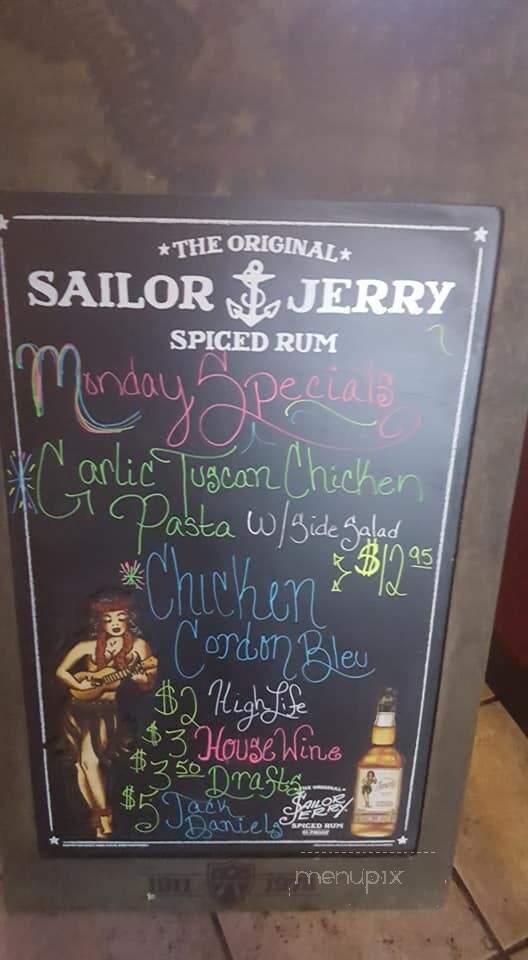 THE ORIGINAL
SAILOR JERRY
SPICED RUM
Monday Specials
Garlic Tuscan Chicken
Pasta W/Side Salad
$12.95
Chicken
Cordon Bleu
$2 High Life
$3 House Wine
$3.50 Drafts
$5 Jack
Daniels
THE ORIGINAL
SAILOR
JERRY
SPICED RUM
menupix